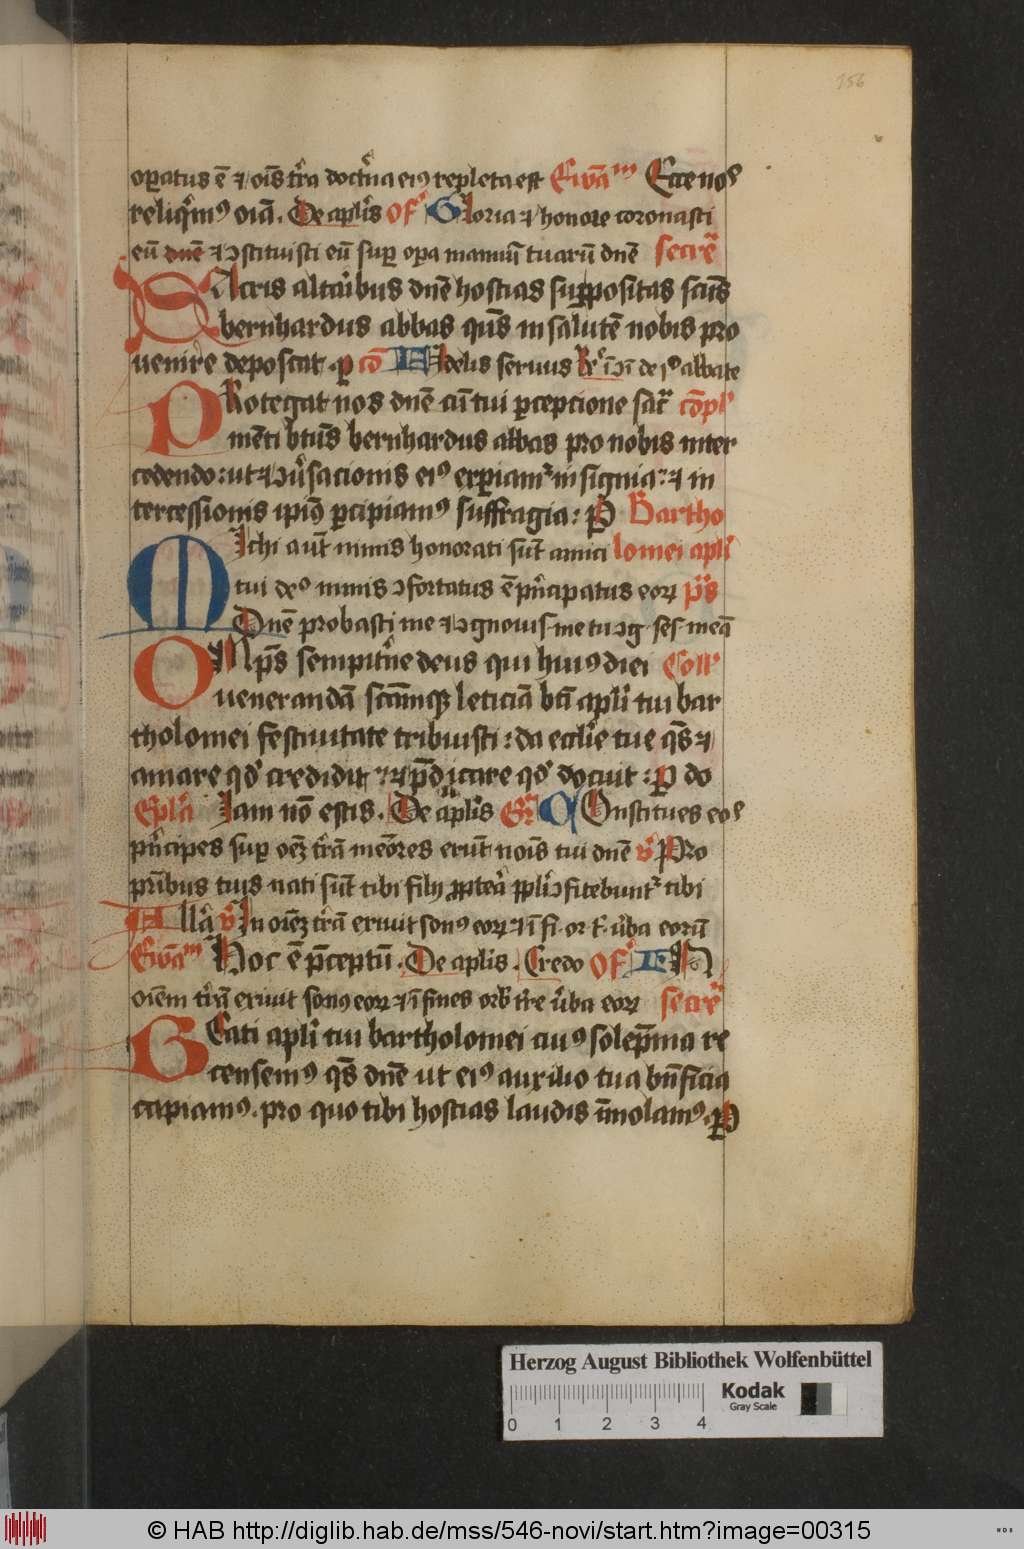 156
op̲atus ē ⁊ oīs t̄ra doct̄na eiꝰ repleta est Ewā Ecce nos
reliq̄mꝰ oīa. De aplīs Of Gloria ⁊ honore coronasti
eū dn̄e ⁊ ↄstituisti eū suꝑ oꝑa manuū tuarū dn̄e secre
SAcris altaribus dn̄e hostias suꝑpositas scūs
bernhardus abbas qs̄ in salutē nobis pro
uenire deposcat ꝑ cō Fidelis seruus abbate
PRotegat nos dn̄e cū tui ꝑceptione sac̄ cōpl
mēti btūs bernhardus abbas pro nobis inter
cedendo: ut ⁊ ↄu̇sacionis eiꝰ exꝑiamᷣ insignia: ⁊ in
tercessionis ipiꝰ ꝑcipiamꝰ suffragia: P Bartho
Michi aut̄ nimis honorati sūt amici lomei apli
tui deꝰ nimis ↄfortatus ē p̄ncipatus eoꝝ p̄s
Dn̄e probasti me ⁊ ↄgnouis me tu ↄg ses meā
OMp̄s sempitn̄e deus qui huiꝰ diei Coll
uenerandā scāmqꝫ leticiā bt̄i apli tui bar
tholomei festiuitate tribuisti: da eccl̄ie tue qs̄ ⁊
amare qd̓ credidit ⁊ p̄dicare qd̓ docuit: P do
Epla Iam nō estis. De aplīs Gr Constitues eos
p̄ncipes suꝑ oēꝫ t̄rā memores erūt noīs tui dn̄e v̄ Pro
pr̄ibus tuis nati sūt tibi filij ꝓpt̄ea ppl̄i ↄfitebuntᷣ tibi
Alla v̄ In oēꝫ t̄rā exiuit sonꝰ eoꝝ ⁊ ī fi or t̄ u̇ba eorū
Ewā Hoc ē p̄ceptū. De aplīs. Credo Of In
oīem t̄rā exiuit sonꝰ eoꝝ ⁊ ī fines orb̄ t̄re u̇ba eoꝝ secre
BEati apli tui bartholomei cuiꝰ solēp̄nia re
censemꝰ qs̄ dn̄e ut eiꝰ auxilio tua bn̄ficia
capiamꝰ. pro quo tibi hostias laudis īmolamꝰ. P
Herzog August Bibliothek Wolfenbüttel
Kodak
Gray Scale
0 1 2 3 4
© HAB http://diglib.hab.de/mss/546-novi/start.htm?image=00315